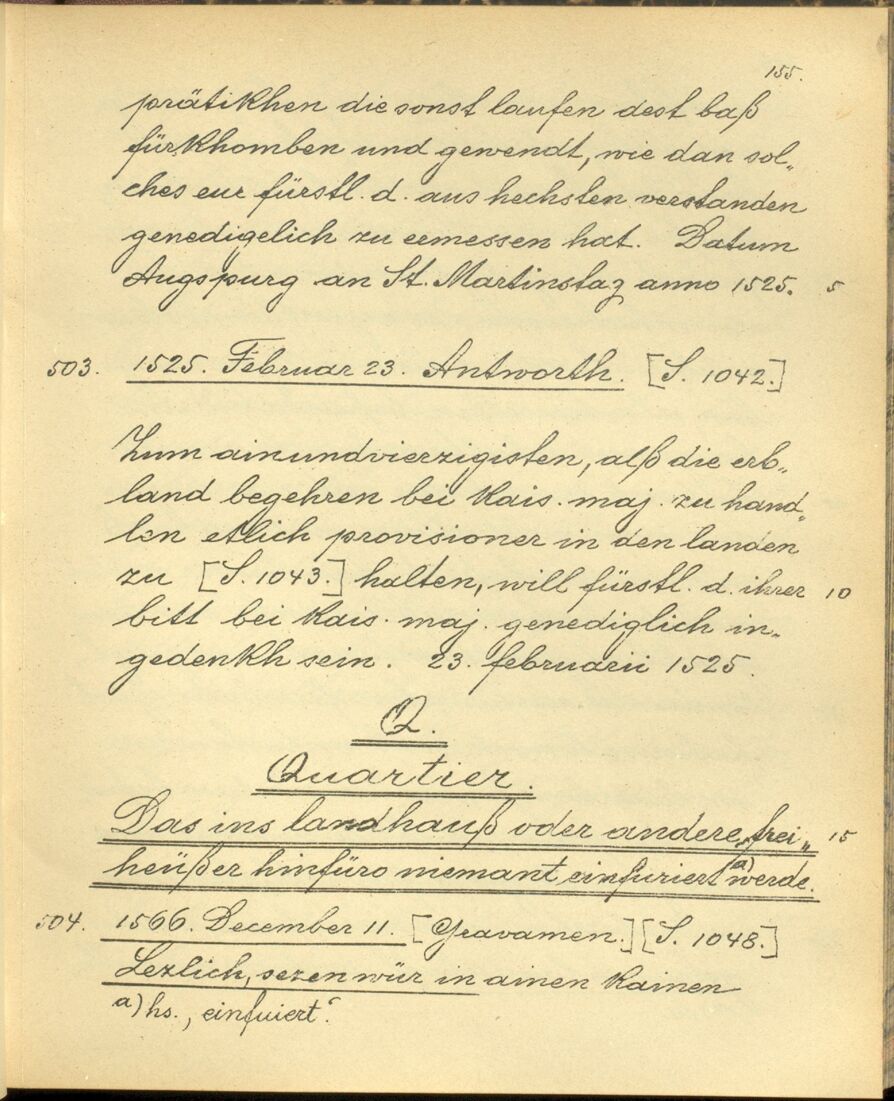 155.
prätikhen die sonst laufen dest baß
fürkhomben und gewendt, wie dan sol„
ches eur fürstl. d. aus hechsten verstanden
genedigelich zu eemessen hat. Datum
Augspurg an St. Martinstag anno 1525. 5
503. 1525. Februar 23. Antworth. [S. 1042.]
Zum ainundvierzigisten, alß die erb„
land begehren bei kais. maj. zu hand„
len etlich provisioner in den landen
zu [S. 1043.] halten, will fürstl. d. ihrer 10
bitt bei kais. maj. genediglich in„
gedenkh sein. 23. februarii 1525.
Q.
Quartier.
Das ins landhauß oder andere frei„ 15
heüßer hinfüro niemant einfuriert a) werde.
504. 1566. December 11. [Gravamen.] [S. 1048.]
Lezlich, sezen wür in ainen kainen
a) hs., einfuiert".